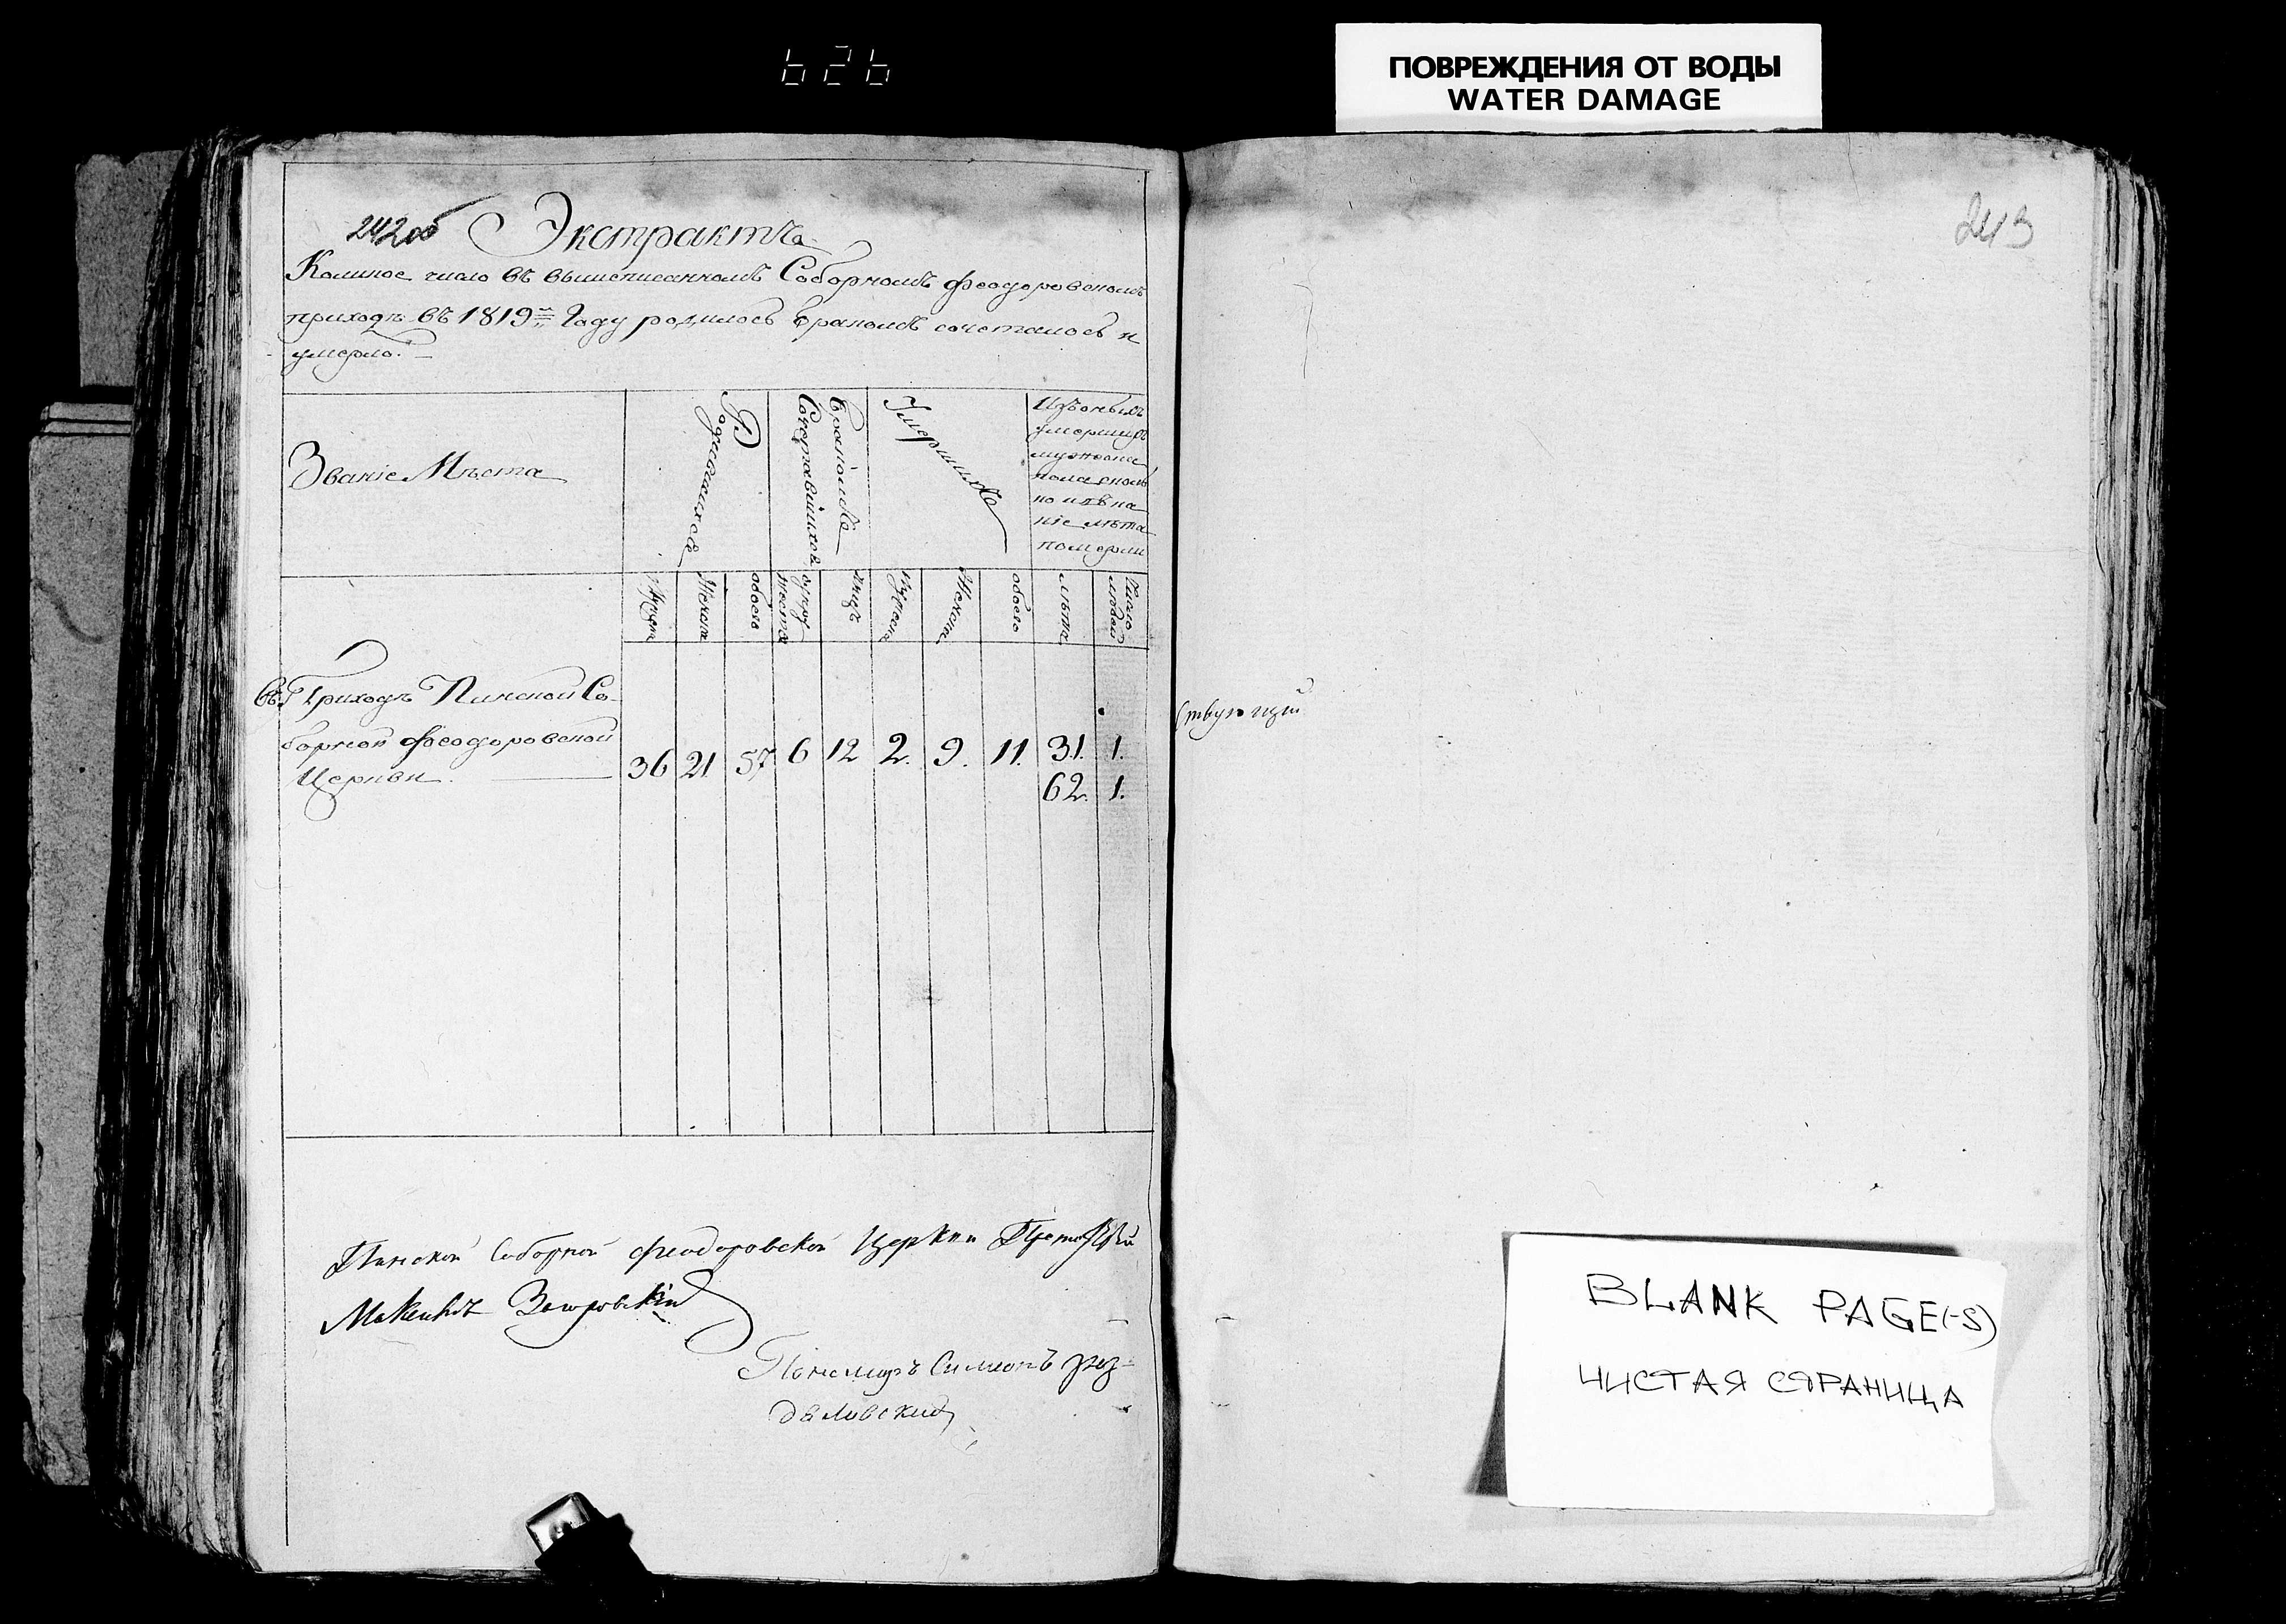 ПОВРЕЖДЕНИЯ ОТ ВОДЫ
WATER DAMAGE
242об
Экстрактъ
Коликое число въ вышеписанномъ Соборномъ Феодоровскомъ
приходѣ въ 1819мъ Году родилось бракомъ сочеталось и
умерло.
Званіе Мѣста
Родившихся
Бракомъ
Сочетавшихся
Умершихъ
Изъ оныхъ
умершихъ
мужеска
пола
лѣта
померли
Мужеска
Женска
обоего
Мужеска
Женска
обоего
лѣта
Число
людей
въ Приходѣ Пинской Со-
борной Феодоровской
Церкви.
36 21 57 6 12 2. 9. 11. 31. 1.
62. 1.
Пинской Соборной Феодоровской Церкви
Пономарь Симеонъ
243
ствующій
BLANK PAGE(-S)
ЧИСТАЯ СТРАНИЦА